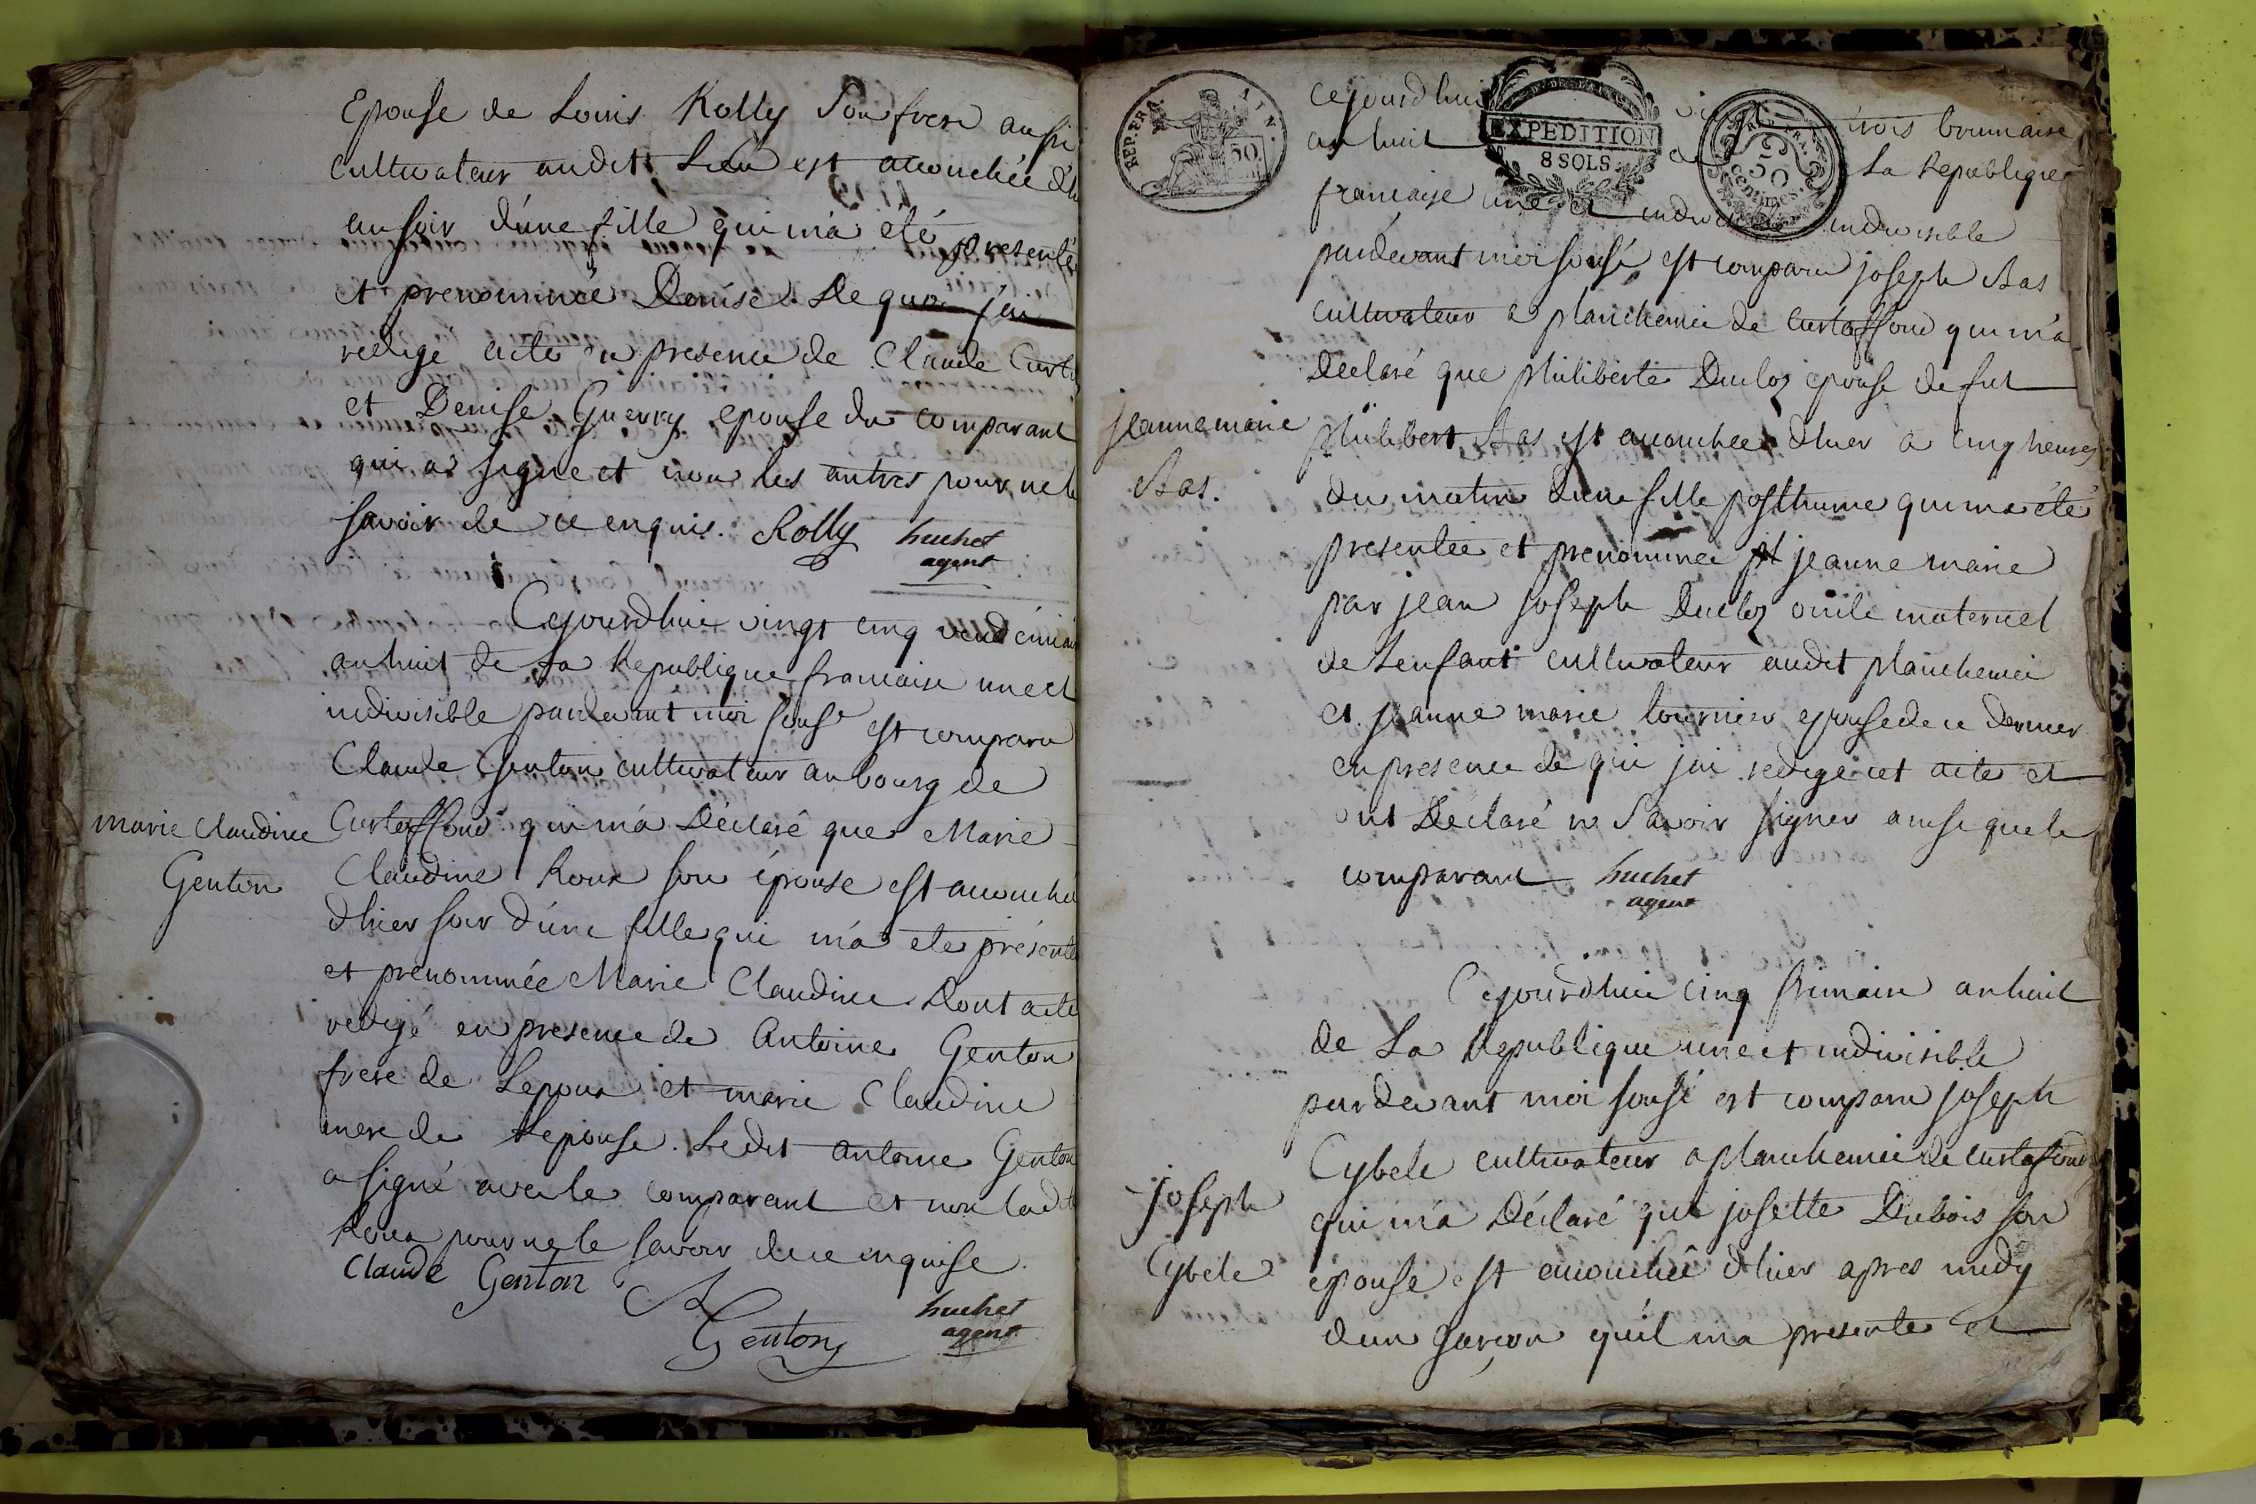 Epouse de Louis Rolly son frere aussi
cultivateur audit Lieu est accouchée d'h
au soir d'une fille qui m'a été presentée
et prenommée Denise. De quoi j'ai
redigé acte en presence de Claude Curt
et Denise Guerry epouse du comparant
qui a signé et non les autres pour ne le
savoir de ce enquis. Rolly huchet
agent
Cejourdhui vingt cinq vendémiair
an huit de La Republique francaise une et
indivisible pardevant moi sousé est comparu
Claude Genton cultivateur au bourg de
marie claudine
Genton
Curtaffond qui m'a Déclaré que Marie
Claudine Roux son épouse est accouchée
d'hier soir d'une fille qui m'a été présentée
et prénommée Marie Claudine Dont acte
redigé en presence de Antoine Genton
frere de Lepoux et marie Claudine
mere de Lepouse. Ledit antoine Genton
a signé avec le comparant et non ladte
Roux pour ne le savoir de ce enquise.
Claude Genton
A Genton huchet
agent
REP. FRA.
50
EXPEDITION
8 SOLS
50
centimes
cejourdhui trois brumaire
an huit de La Republique
francaise une et indivisible
pardevant moi sousé est comparu joseph Bas
cultivateur a planchemie de Curtaffond qui m'a
Declaré que philiberte Ducloz epouse de fut
jeanne marie
Bas.
philibert Bas est accouchée d'hier a cinq heures
du matin d'une fille posthume qui m'a été
presentée et prenommée jeanne marie
par jean joseph Ducloz oncle maternel
de Lenfant cultivateur audit planchemie
et jeanne marie tournier epouse de ce dernier
en presence de qui jai redigé cet acte et
ont Déclaré ne Savoir signer ainsi que le
comparant huchet
agent
Cejourdhui cinq frimaire an huit
de La Republique une et indivisible
pardevant moi sousé est comparu joseph
Cybele cultivateur a planchemie de Curtafond
joseph
Cybele
qui m'a Déclaré que josette Dubois son
epouse est accouchée d'hier apres midy
d'un garçon qu'il m'a presenté et